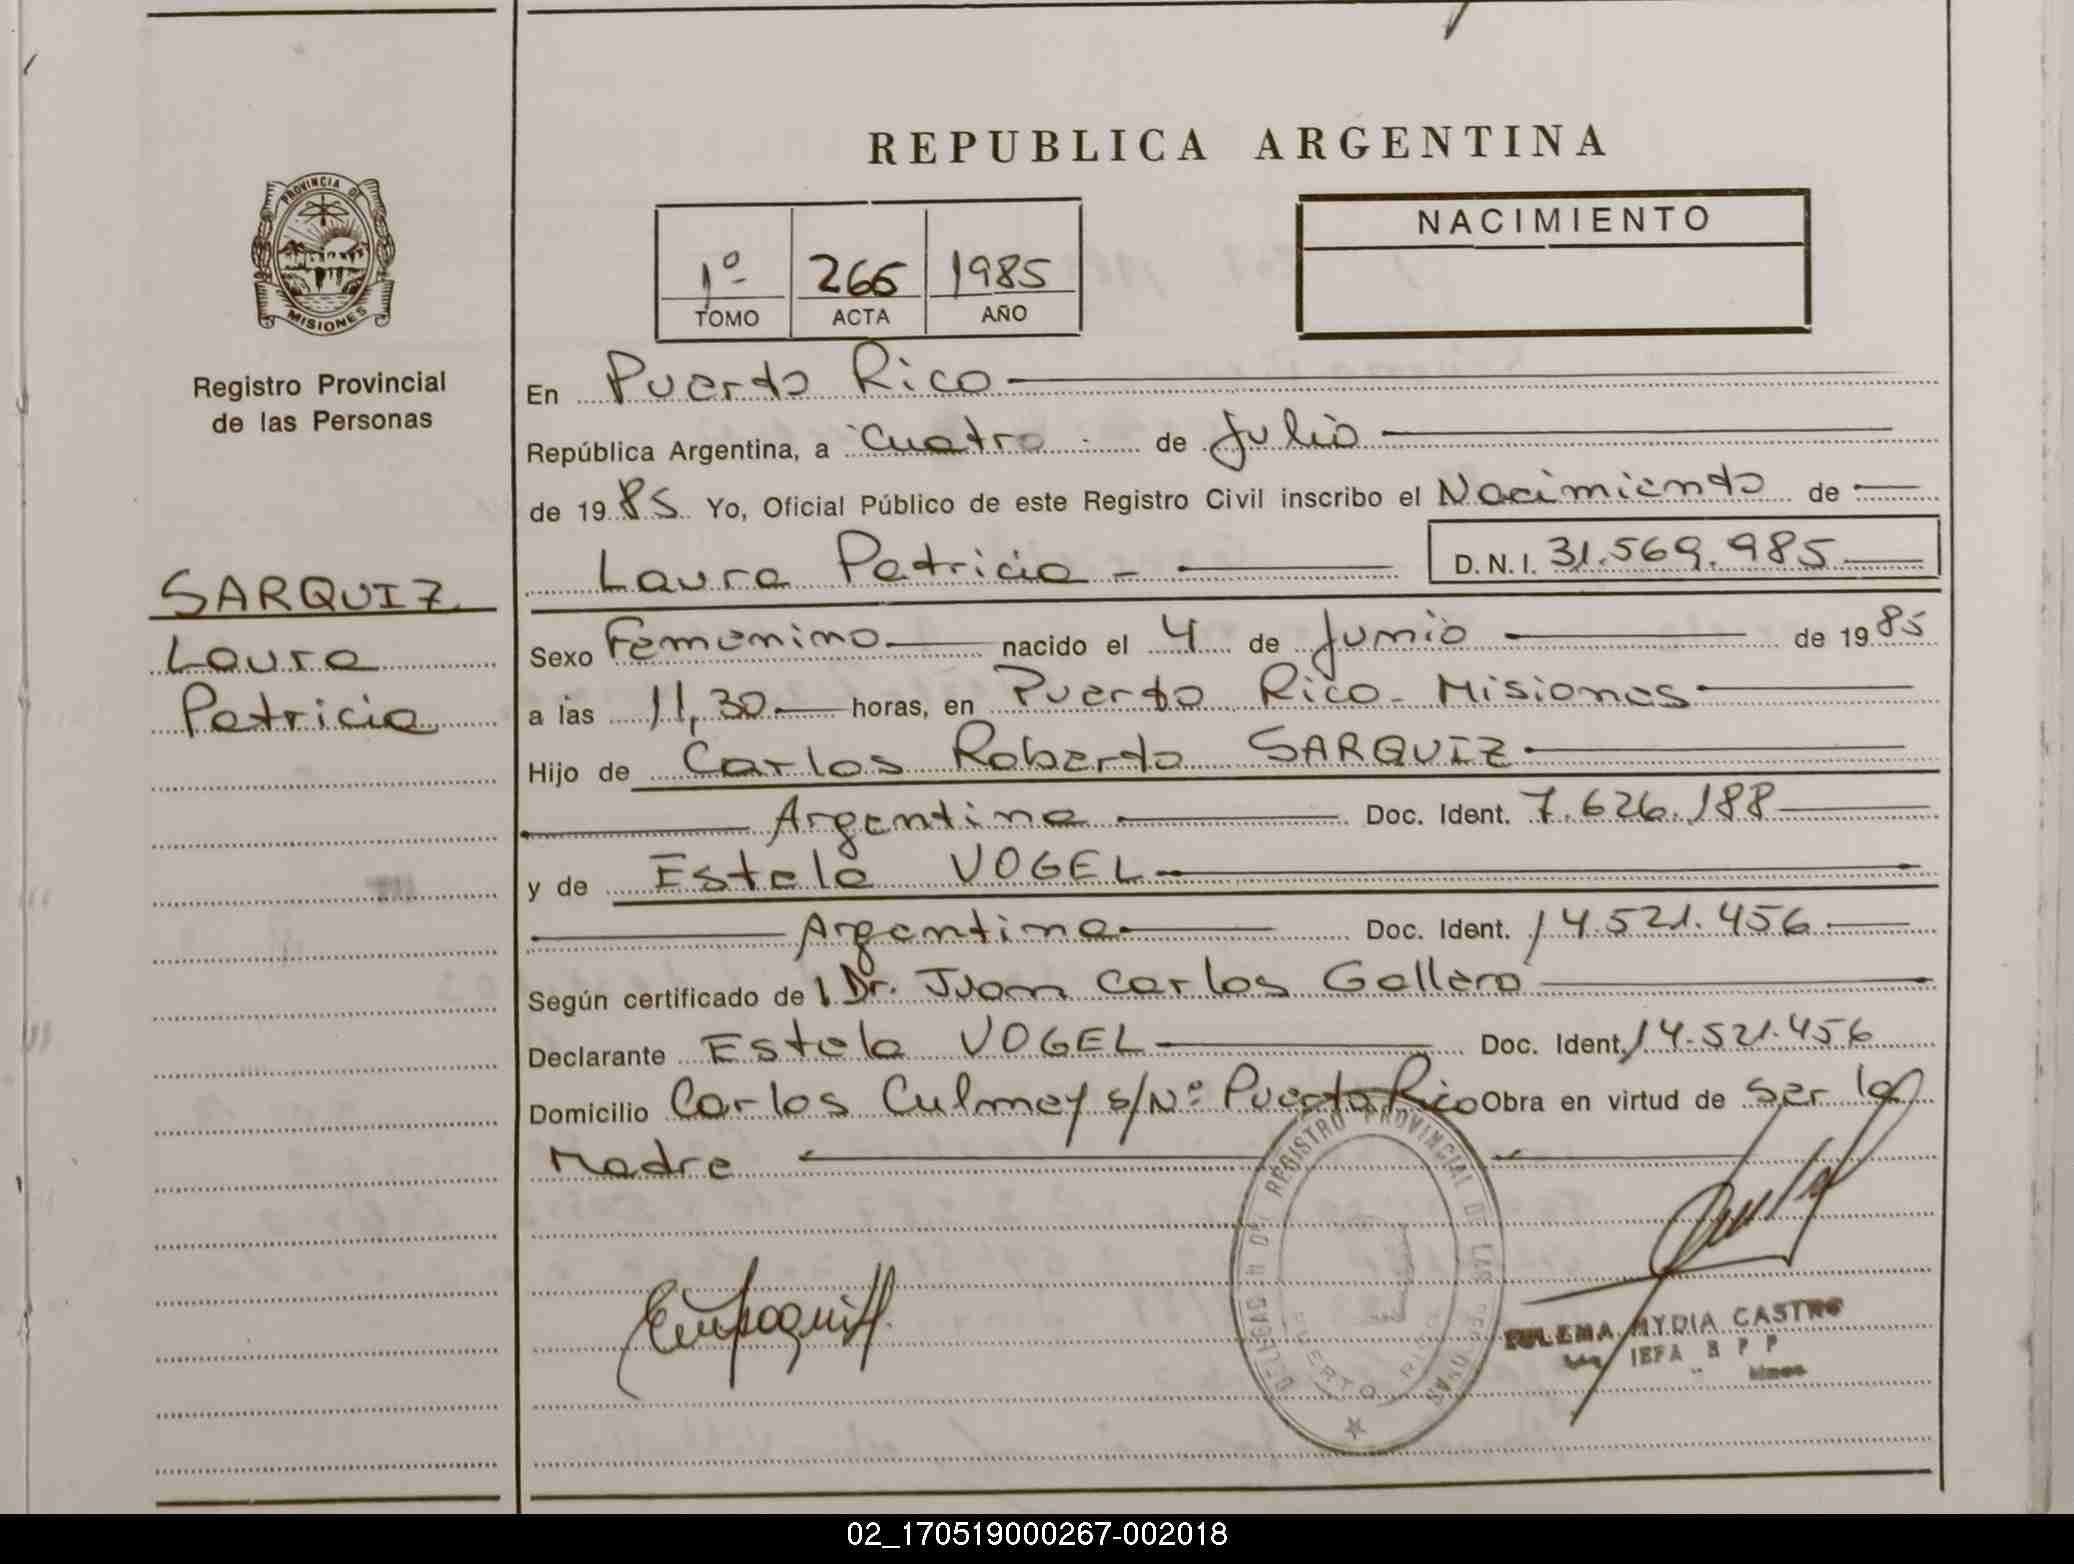 REPUBLICA ARGENTINA
PROVINCIA DE
MISIONES
Registro Provincial
de las Personas
SARQUIZ
Laura
Patricia
1º 266 1985
TOMO ACTA AÑO
NACIMIENTO
En Puerto Rico
República Argentina, a cuatro de Julio
de 1985 Yo, Oficial Público de este Registro Civil inscribo el Nacimiento de
Laura Patricia - D.N.I. 31.569.985
Sexo Femenino nacido el 4 de Junio de 1985
a las 11,30 horas, en Puerto Rico - Misiones
Hijo de Carlos Roberto SARQUIZ
Argentina Doc. Ident. 7.626.188
y de Estela VOGEL
Argentina Doc. Ident. 14.521.456
Según certificado de l Dr. Juan Carlos Gallero
Declarante Estela VOGEL Doc. Ident. 14.521.456
Domicilio Carlos Culmey s/Nº Puerto Rico Obra en virtud de ser la
Madre
REGISTRO PROVINCIAL DE LAS PERSONAS
PUERTO RICO
MYDIA CASTRO
02_170519000267-002018